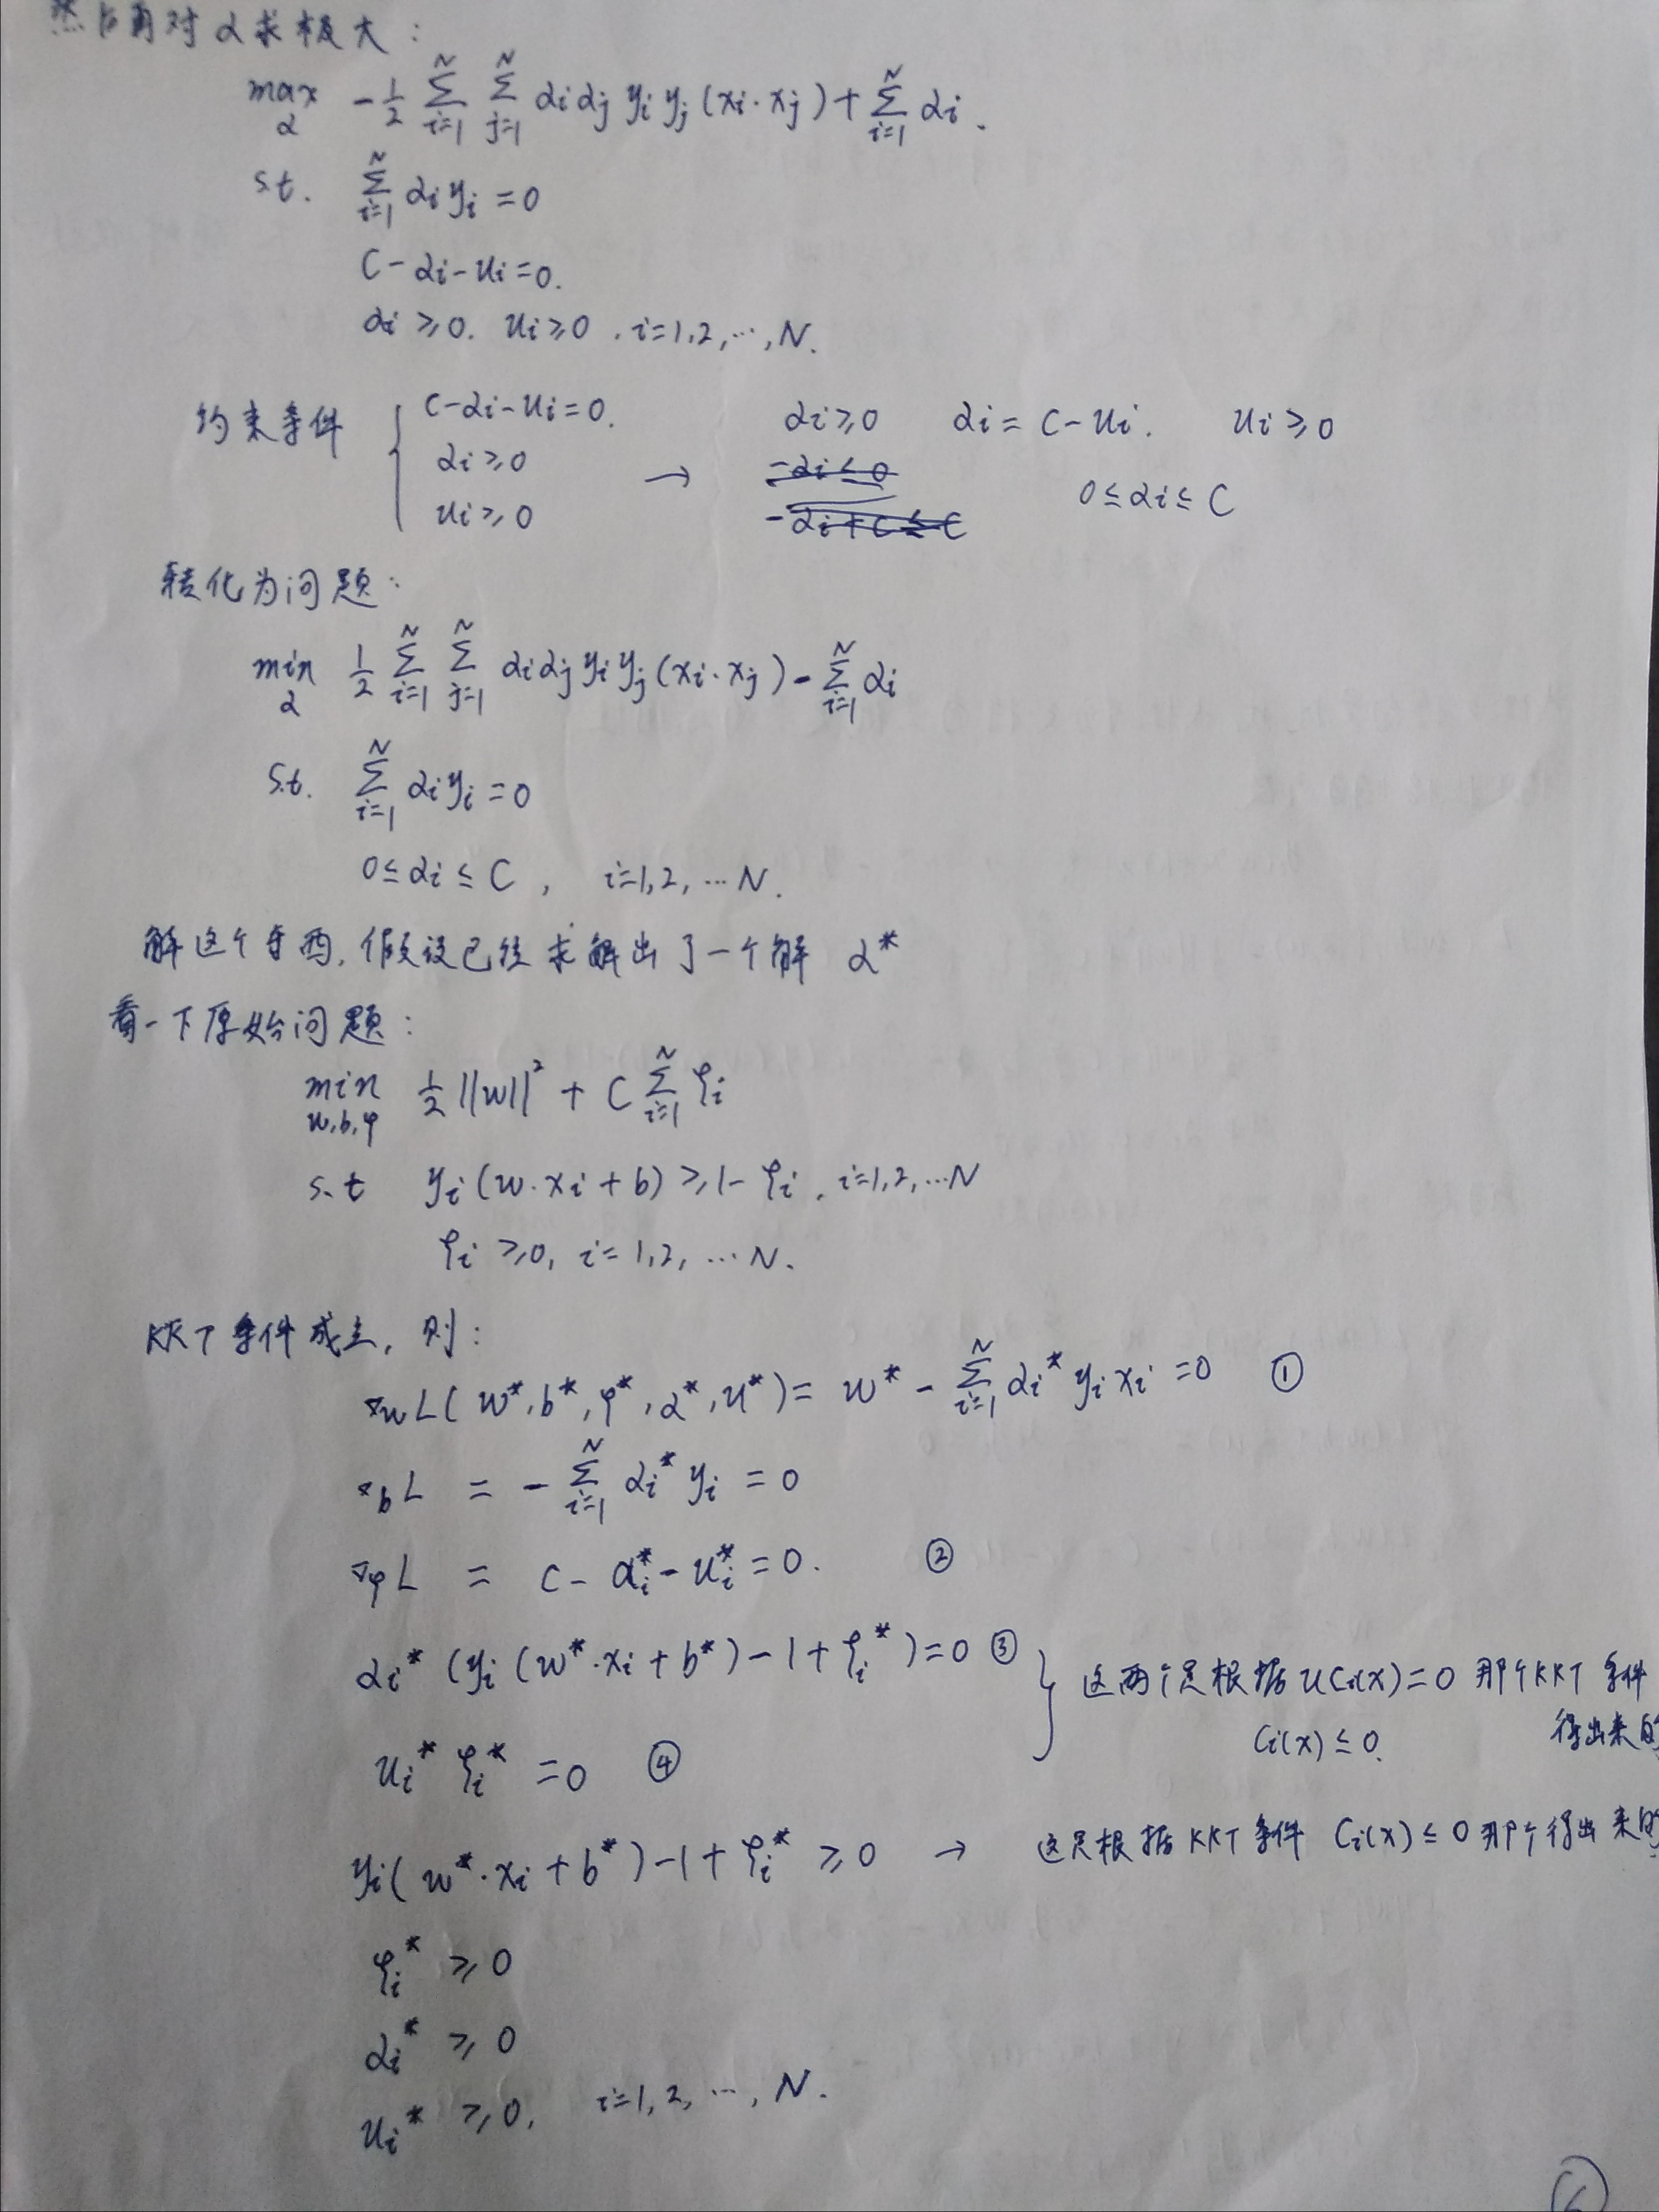 然后再对α求极大:
max α -1/2 Σ_{i=1}^{N} Σ_{j=1}^{N} αi αj yi yj (xi·xj) + Σ_{i=1}^{N} αi.
s.t. Σ_{i=1}^{N} αi yi = 0
C-αi-ui=0.
αi ≥0. ui≥0 , i=1,2,…,N.
约束条件 { C-αi-ui=0. αi≥0 αi = C-ui. ui≥0
αi≥0 → -αi≤0 0≤αi≤C
ui≥0 -αi+C≤C
转化为问题:
min α 1/2 Σ_{i=1}^{N} Σ_{j=1}^{N} αi αj yi yj (xi·xj) - Σ_{i=1}^{N} αi
s.t. Σ_{i=1}^{N} αi yi = 0
0≤αi≤C , i=1,2,…N.
解这个东西,假设已经求解出了一个解 α*
看一下原始问题:
min w,b,φ 1/2 ||w||² + C Σ_{i=1}^{N} φi
s.t yi(w·xi+b)≥1-φi, i=1,2,…N
φi ≥0, i=1,2,…N.
KKT条件成立,则:
∇wL(w*,b*,φ*,α*,u*)= w* - Σ_{i=1}^{N} αi* yi xi =0 ①
∇bL = - Σ_{i=1}^{N} αi* yi = 0
∇φL = C-αi*-ui*=0. ②
αi*(yi(w*·xi+b*)-1+φi*)=0 ③ } 这两个是根据 uCi(x)=0 那个KKT条件
Ci(x)≤0. 得出来的
ui* φi* =0 ④
yi(w*·xi+b*)-1+φi* ≥0 → 这是根据KKT条件 Ci(x)≤0 那个得出来的
φi* ≥0
αi* ≥0
ui* ≥0, i=1,2,…,N.